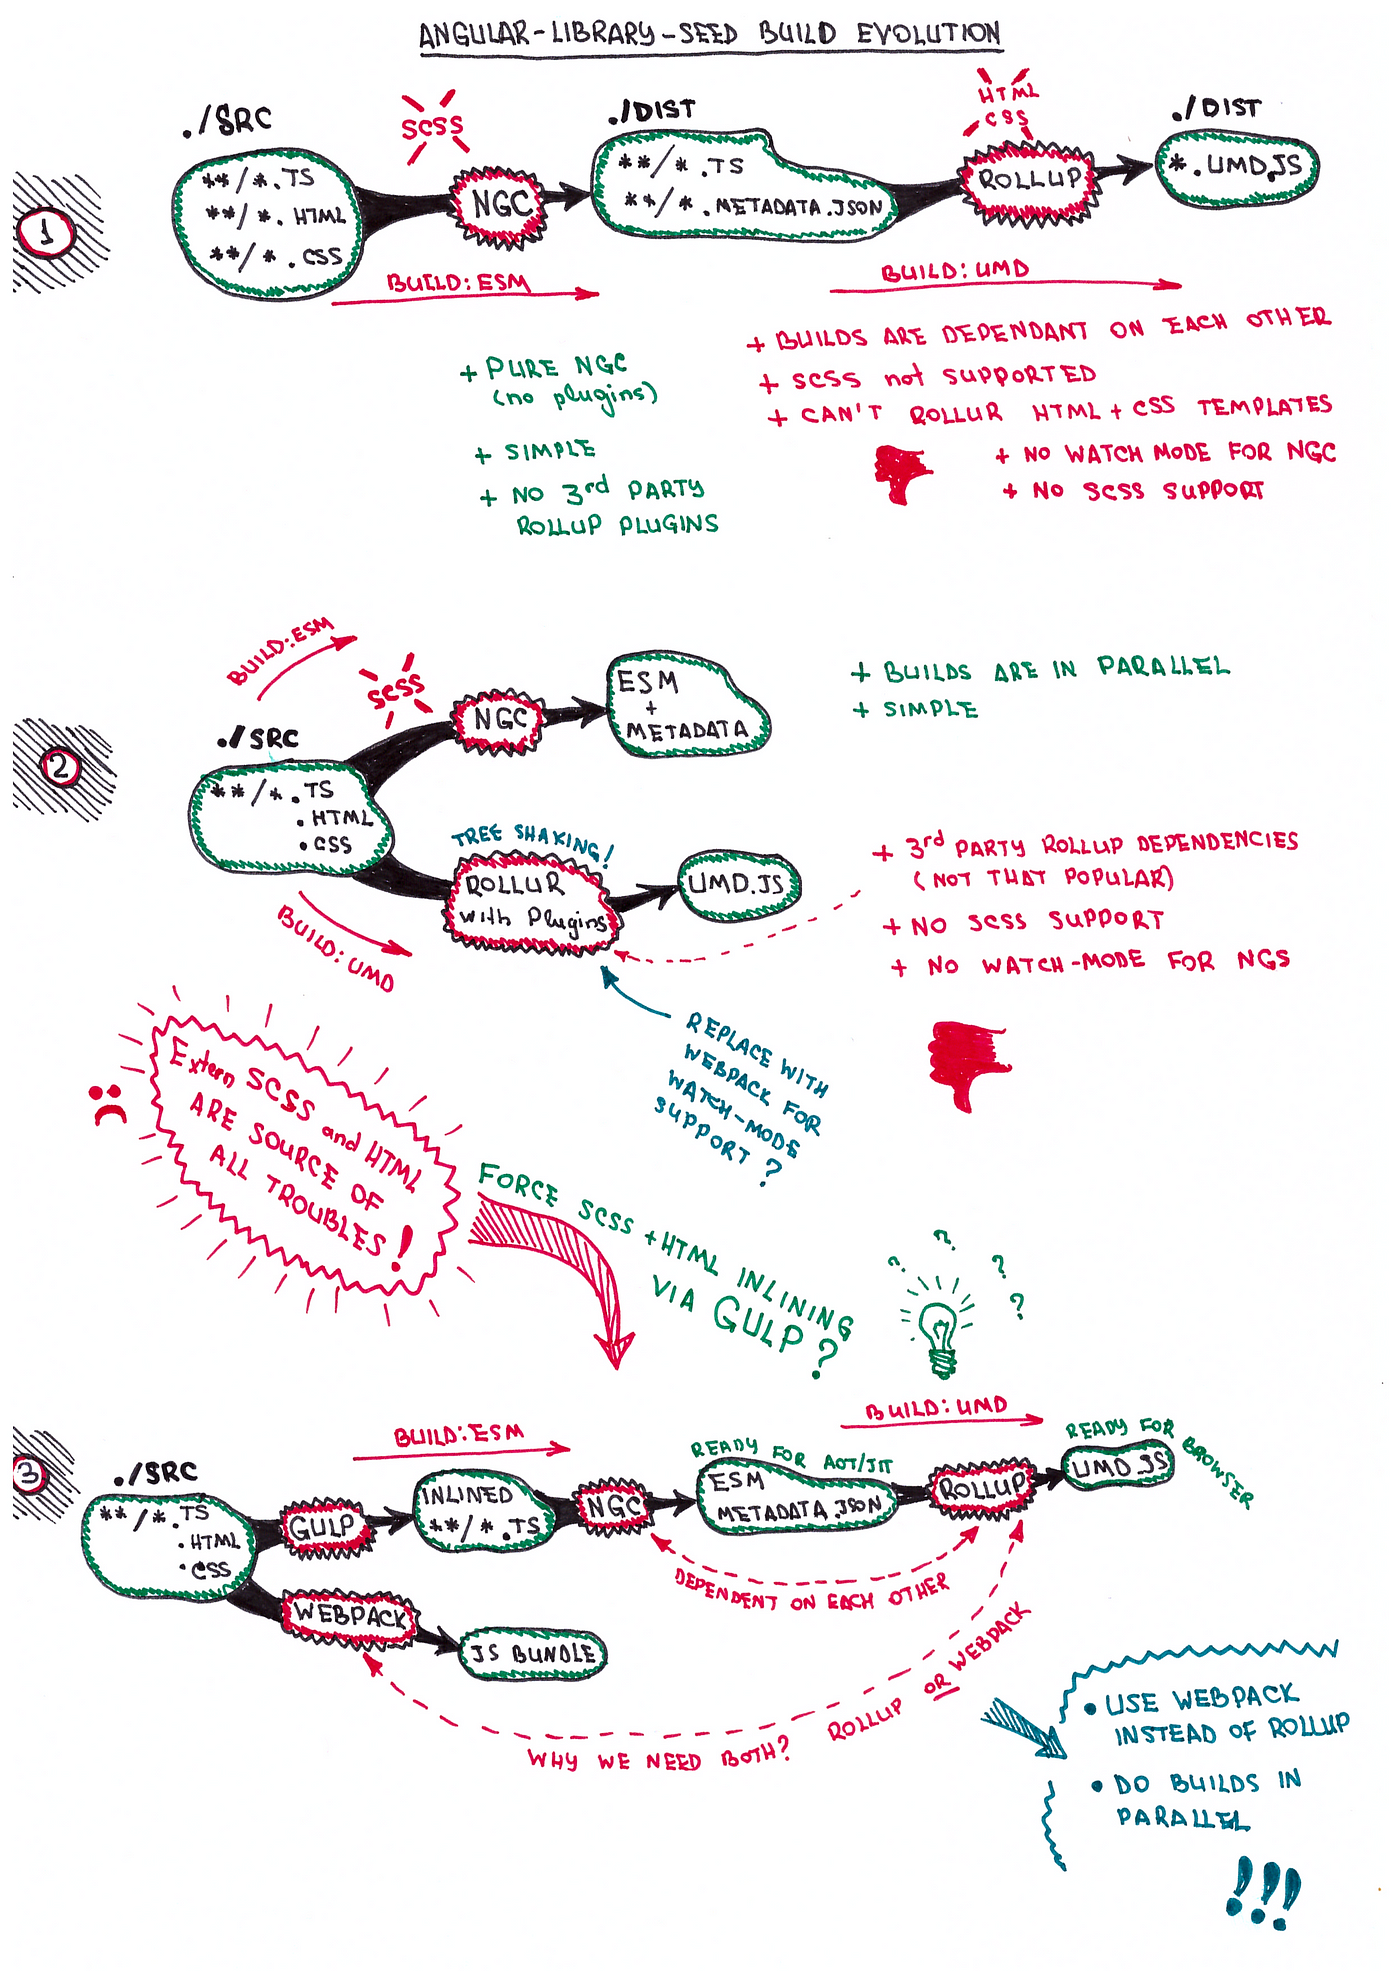 ANGULAR-LIBRARY-SEED BUILD EVOLUTION
1
./SRC
**/*.TS
**/*.HTML
**/*.CSS
SCSS
NGC
BUILD:ESM
./DIST
**/*.TS
**/*.METADATA.JSON
HTML
CSS
ROLLUP
BUILD:UMD
./DIST
*.UMD.JS
+ PURE NGC
(no plugins)
+ SIMPLE
+ NO 3rd PARTY
ROLLUP PLUGINS
+ BUILDS ARE DEPENDANT ON EACH OTHER
+ SCSS not SUPPORTED
+ CAN'T ROLLUR HTML+CSS TEMPLATES
+ NO WATCH MODE FOR NGC
+ NO SCSS SUPPORT
2
BUILD:ESM
SCSS
./SRC
**/*.TS
.HTML
.CSS
NGC
ESM
+
METADATA
TREE SHAKING!
ROLLUR
with Plugins
UMD.JS
BUILD:UMD
+ BUILDS ARE IN PARALLEL
+ SIMPLE
+ 3rd PARTY ROLLUP DEPENDENCIES
(NOT THAT POPULAR)
+ NO SCSS SUPPORT
+ NO WATCH-MODE FOR NGS
REPLACE WITH
WEBPACK FOR
WATCH-MODE
SUPPORT?
Extern SCSS and HTML
ARE SOURCE OF
ALL TROUBLES!
FORCE SCSS+HTML INLINING
VIA GULP?
? ? ? ?
3
BUILD:ESM
BUILD:UMD
./SRC
**/*.TS
.HTML
.CSS
GULP
INLINED
**/*.TS
NGC
READY FOR AOT/JIT
ESM
METADATA.JSON
ROLLUP
READY FOR BROWSER
UMD.JS
DEPENDENT ON EACH OTHER
WEBPACK
JS BUNDLE
WHY WE NEED BOTH? ROLLUP OR WEBPACK
• USE WEBPACK
INSTEAD OF ROLLUP
• DO BUILDS IN
PARALLEL
!!!